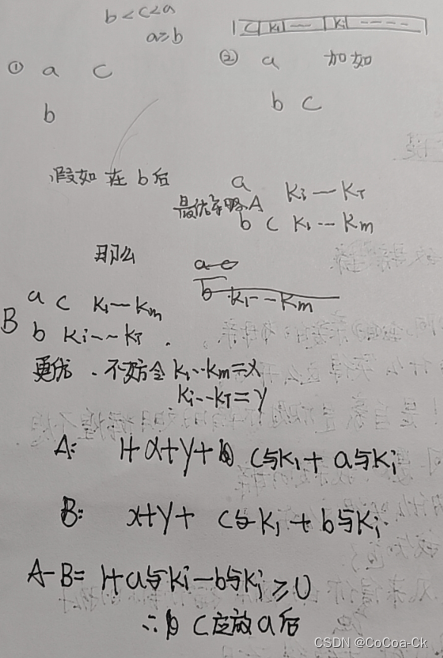 b < c < a
a≥b
C K₁ — Ki ----
① a c
② a 加如
b
b c
假如 在 b 后
最优策略A
a Ki — KT
b c K₁ ... Km
那么
a c
b K₁ -- Km
B
a c K₁ — Km
b Ki ~~ KT .
更优 . 不妨令 K₁ .. Km = x
Ki .. KT = y
A: 1+x+y+ c与K₁ + a与Ki
B: x+y+ c与K₁ + b与Ki
A-B= 1+a与Ki-b与Ki ≥0
∴ c应放a后
CSDN @CoCoa-Ck